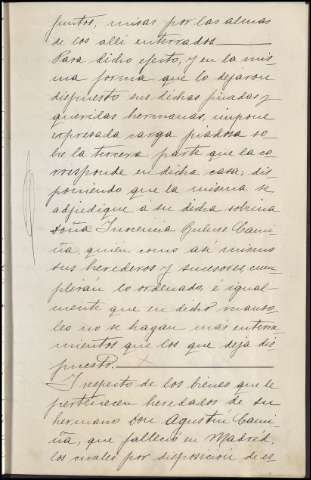 puntos, misas por las almas
de los alli enterrados.
Para dicho efecto, y en la mis
ma forma que lo dejaron
dispuesto sus dichas finadas y
queridas hermanas, impone
expresada carga piadosa so
bre la tercera parte que la co
rresponde en dicha casa; dis
poniendo que la misma se
adjudique á su dicha sobrina
Doña Inocencia Cami
ña, quién como asi mismo
sus herederos y sucesores, cum
plirán lo ordenado, é igual
mente que en dicho mauso
leo no se hagan más enterra
mientos que los que deja dis
puesto.
Y respecto de los bienes que le
pertenecen heredados de su
hermano Don Agustín Cami
ña, que falleció en Madrid,
los cuales por disposición de es